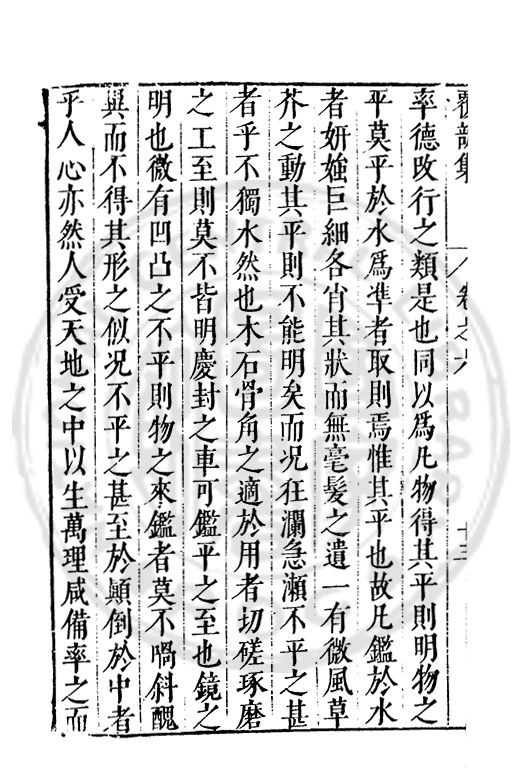 覆瓿集 卷之六 十三
率德改行之類是也同以爲凡物得其平則明物之
平莫平於水爲準者取則焉惟其平也故凡鑑於水
者妍媸巨細各肖其狀而無毫髮之遺一有微風草
芥之動其平則不能明矣而况狂瀾急瀬不平之甚
者乎不獨水然也木石骨角之適於用者切磋琢磨
之工至則莫不皆明慶封之車可鑑平之至也鏡之
明也微有凹凸之不平則物之來鑑者莫不喎斜醜
異而不得其形之似况不平之甚至於顚倒於中者
乎人心亦然人受天地之中以生萬理咸備率之而